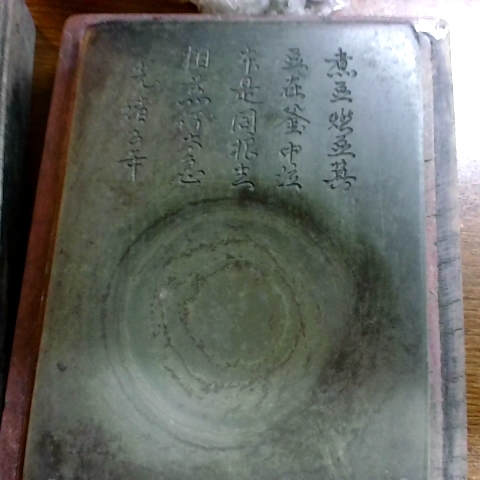 煮豆燃豆萁
豆在釜中泣
本是同根生
相煎何太急
光緒五年